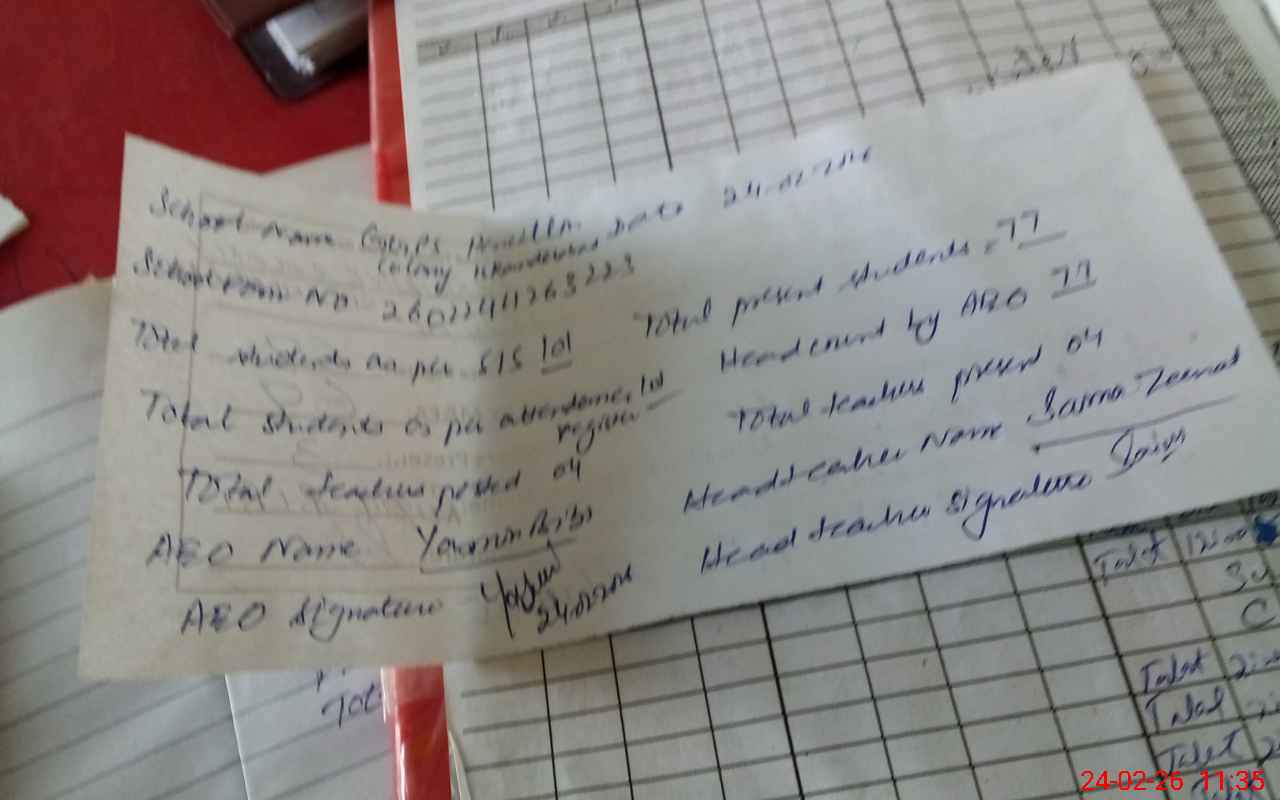 School Name GGPS Date 24-02-2026
Colony
School EMIS No. 26022411263223
Total students as per SIS 101
Total students as per attendance 101
register
Total teachers posted 04
AEO Name Yasmin Bibi
AEO Signature
24.02.2026
Total present students = 77
Head count by AEO 77
Total teachers present 04
Head teacher Name Saima Zeenat
Head teacher signature
Tot
Talat
Talat
Talat
Talat
24-02-26 11:35